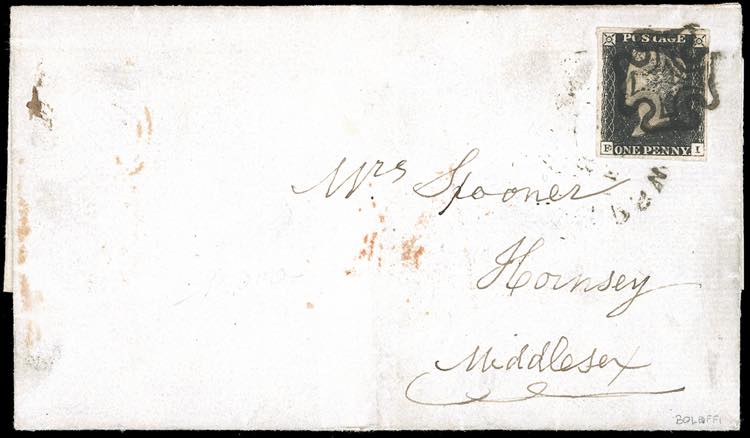 POSTAGE
F I
ONE PENNY
Mrs Spooner
Hornsey
Middlesex
BOLAFFI